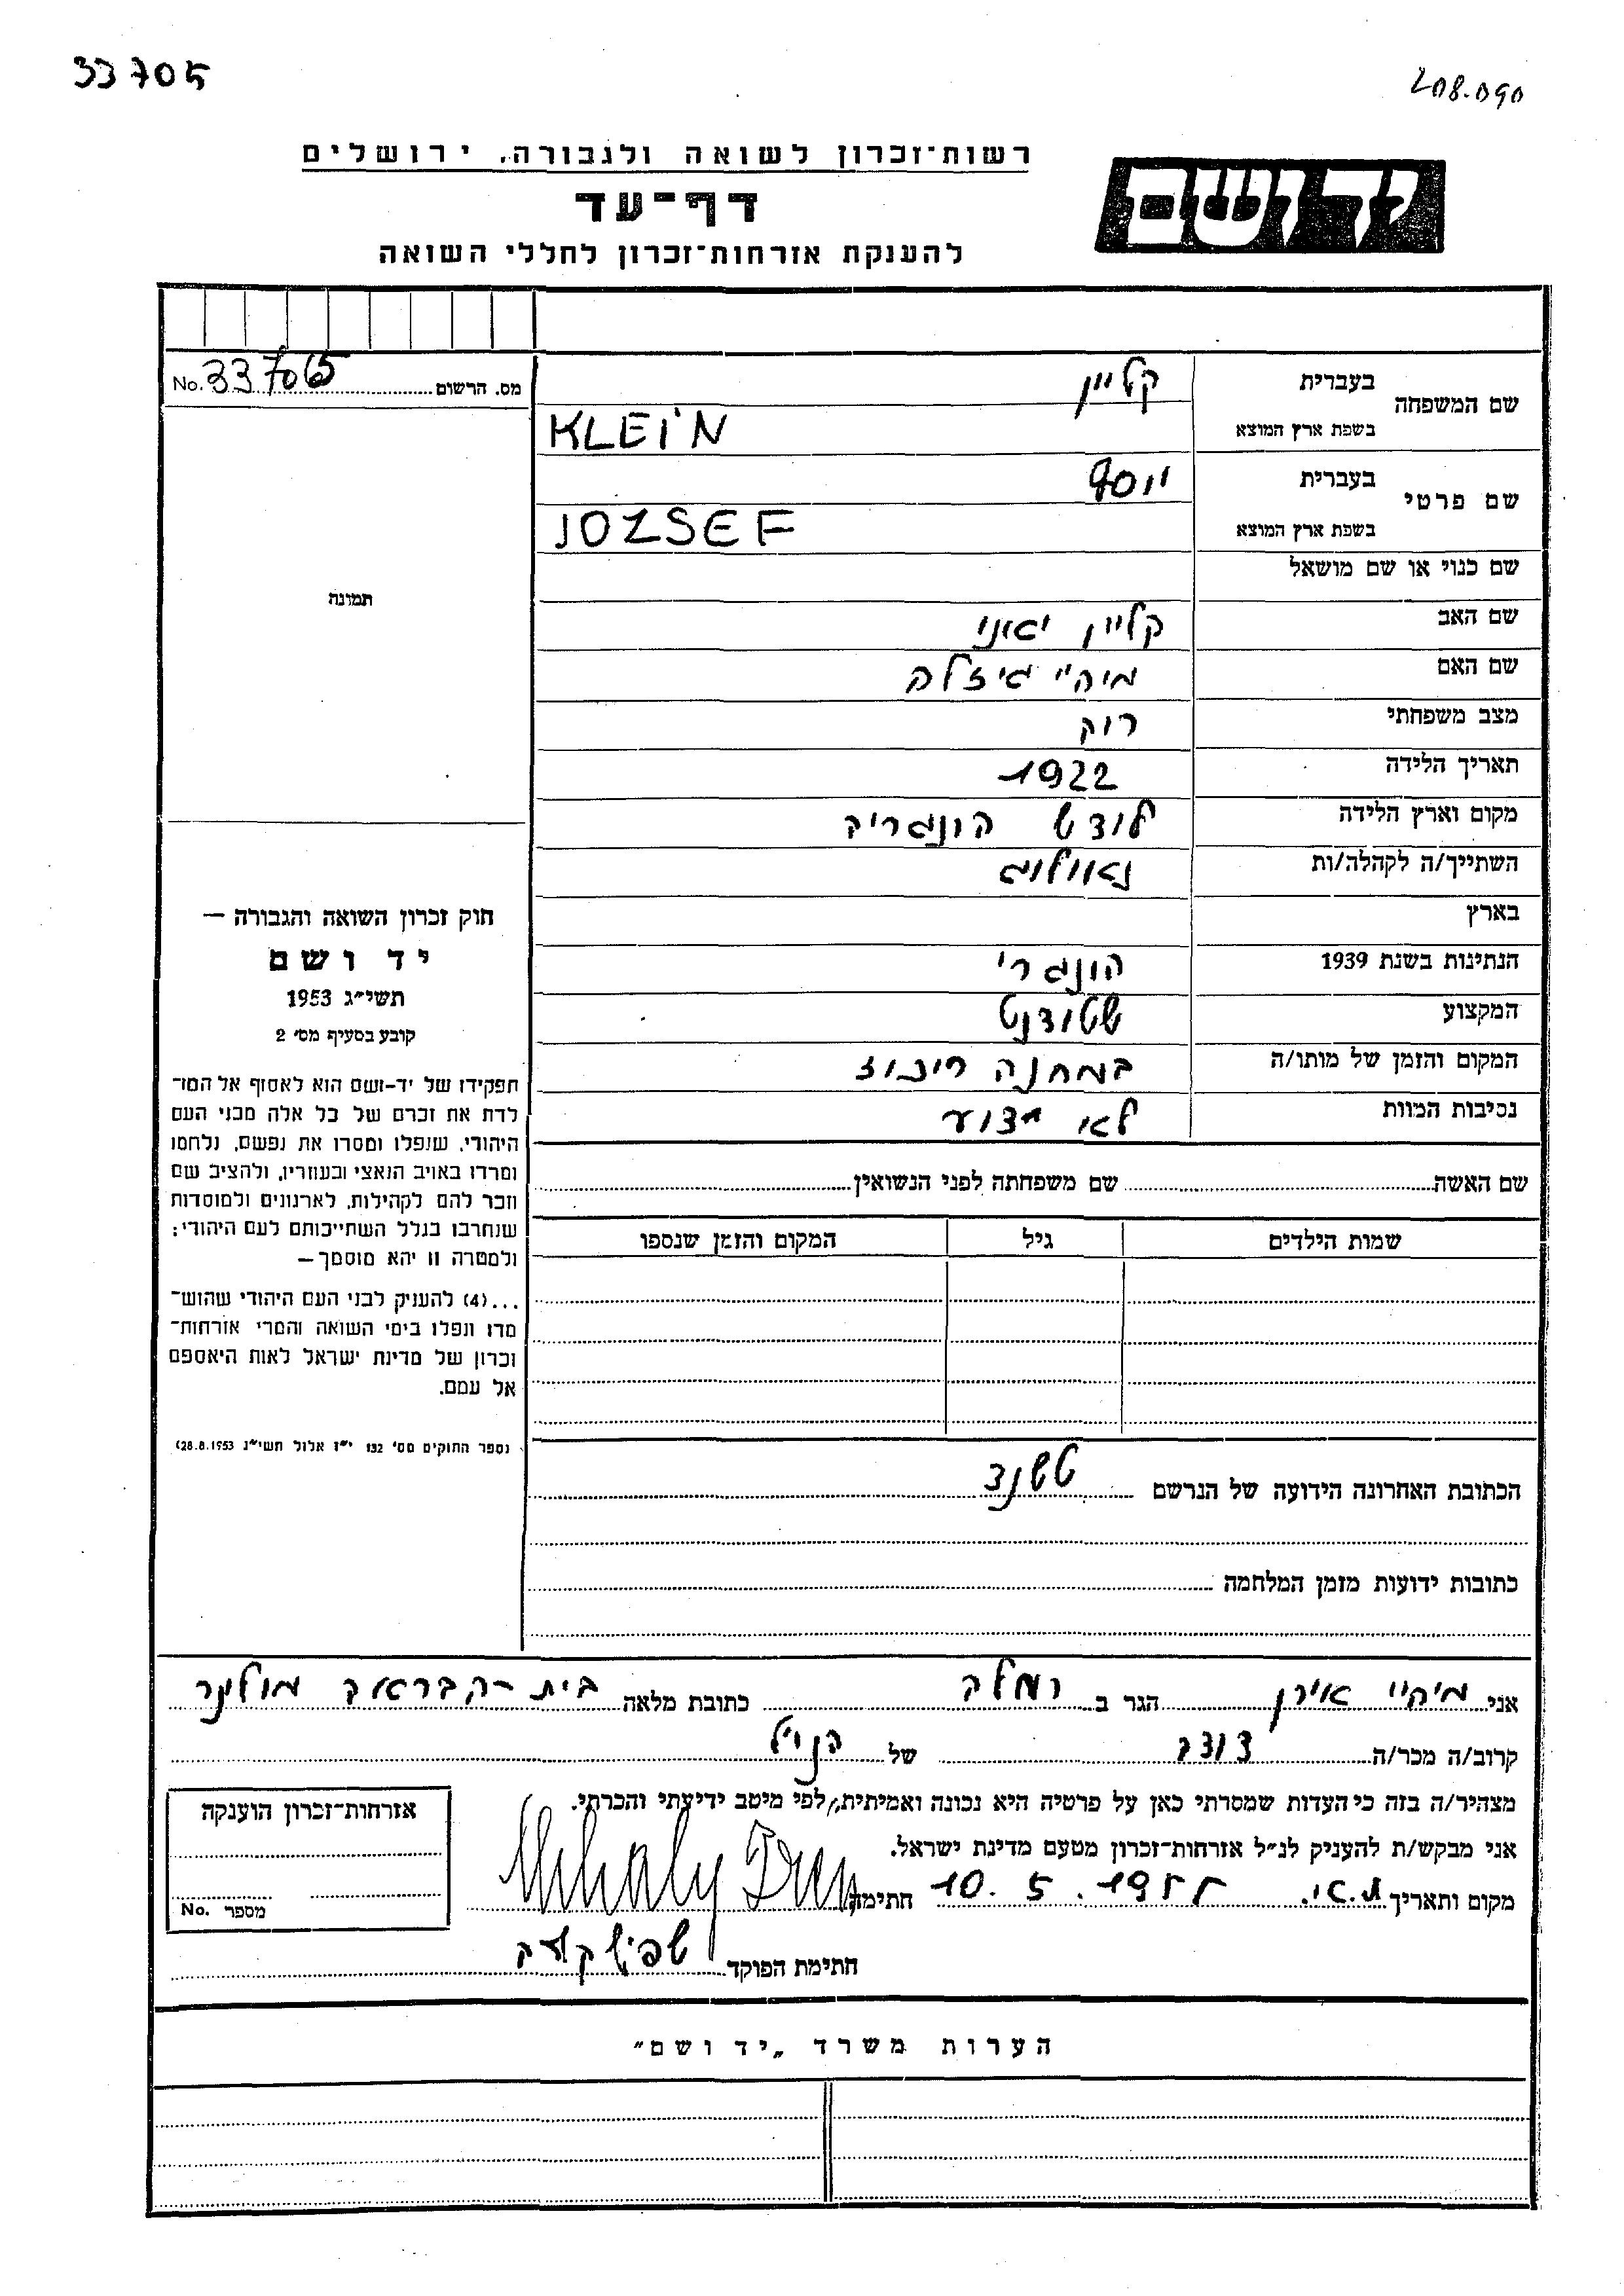 33705
208.090
רשות־זכרון לשואה ולגבורה, ירושלים
יד ושם
דף־עד
להענקת אזרחות־זכרון לחללי השואה
מס. הרשום No. 33705
שם המשפחה בעברית קליין
בשפת ארץ המוצא KLEIN
שם פרטי בעברית יוסף
בשפת ארץ המוצא JOZSEF
שם כנוי או שם מושאל
תמונה
שם האב קליין יאני
שם האם מיהיי גיזלה
מצב משפחתי רוק
תאריך הלידה 1922
מקום וארץ הלידה לודט הונגריה
השתייך/ה לקהלה/ות
בארץ
הנתינות בשנת 1939 הונגרי
המקצוע סטודנט
המקום והזמן של מותו/ה במחנה ריכוז
נסיבות המוות לא ידוע
חוק זכרון השואה והגבורה —
יד ושם
תשי״ג 1953
קובע בסעיף מס׳ 2
תפקידו של יד-ושם הוא לאסוף אל המו־
לדת את זכרם של כל אלה מבני העם
היהודי, שנפלו ומסרו את נפשם, נלחמו
ומרדו באויב הנאצי ובעוזריו, ולהציב שם
וזכר להם לקהילות, לארגונים ולמוסדות
שנחרבו בגלל השתייכותם לעם היהודי;
ולמטרה זו יהא מוסמך—
...(4) להעניק לבני העם היהודי שהוש־
מדו ונפלו בימי השואה והמרי אזרחות־
זכרון של מדינת ישראל לאות היאספם
אל עמם.
(ספר החוקים מס׳ 132 י״ז אלול תשי״ג 28.8.1953)
שם האשה שם משפחתה לפני הנשואין
שמות הילדים גיל המקום והזמן שנספו
הכתובת האחרונה הידועה של הנרשם
כתובות ידועות מזמן המלחמה
אני מיהיי אירן הגר ב רמלה כתובת מלאה בית הבראה
קרוב/ה מכר/ה דודה של הנ״ל
מצהיר/ה בזה כי העדות שמסרתי כאן על פרטיה היא נכונה ואמיתית, לפי מיטב ידיעתי והכרתי.
אני מבקש/ת להעניק לנ״ל אזרחות־זכרון מטעם מדינת ישראל.
מקום ותאריך 10.5.1955 חתימה Mihaly Iren
חתימת הפוקד
אזרחות־זכרון הוענקה
מספר No.
הערות משרד „יד ושם״